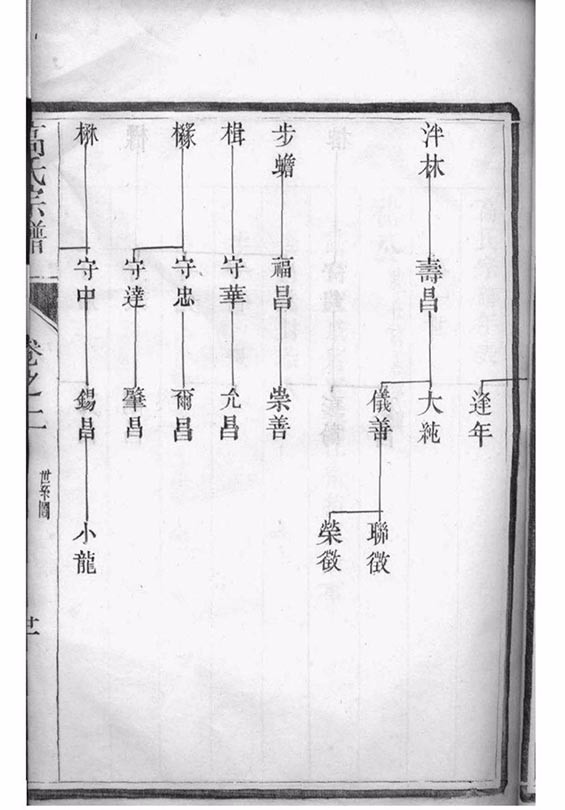 泮林
步蟾
楫
壽昌
福昌
守華
守忠
守達
守中
逢年
大純
儀善
崇善
允昌
爾昌
肇昌
錫昌
聯徵
榮徵
小龍
高氏宗譜
卷之二
世系圖